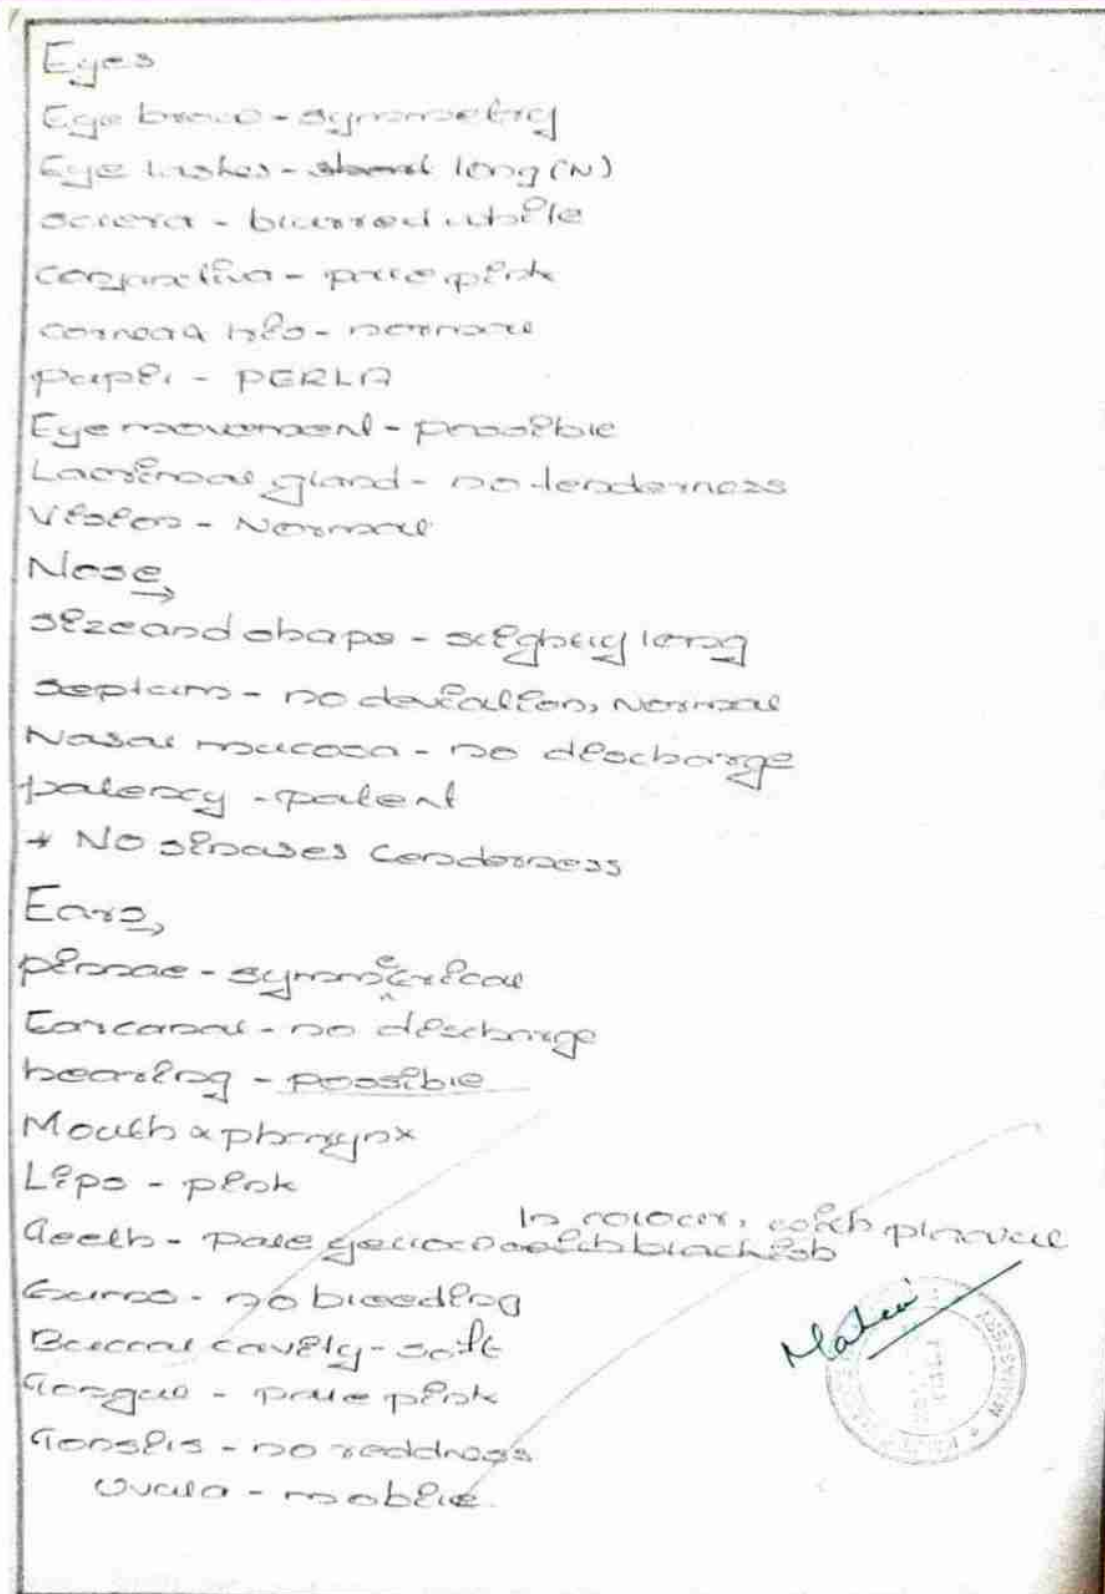 Eyes
Eye brow - symmetry
Eye lashes - long (N)
sclera - blurred white
conjunctiva - pale pink
cornea & iris - normal
pupil - PERLA
Eye movement - possible
Lacrimal gland - no tenderness
Vision - Normal
Nose
size and shape - slightly long
septum - no deviation, Normal
Nasal mucosa - no discharge
patency - patent
+ No sinuses tenderness
Ears
pinnae - symmetrical
Ear canal - no discharge
hearing - possible
Mouth & pharynx
Lips - pink
In colour, with
Teeth - pale yellow with blackish
Gums - no bleeding
Buccal cavity - soft
Tongue - pale pink
Tonsils - no reddness
Uvula - mobile